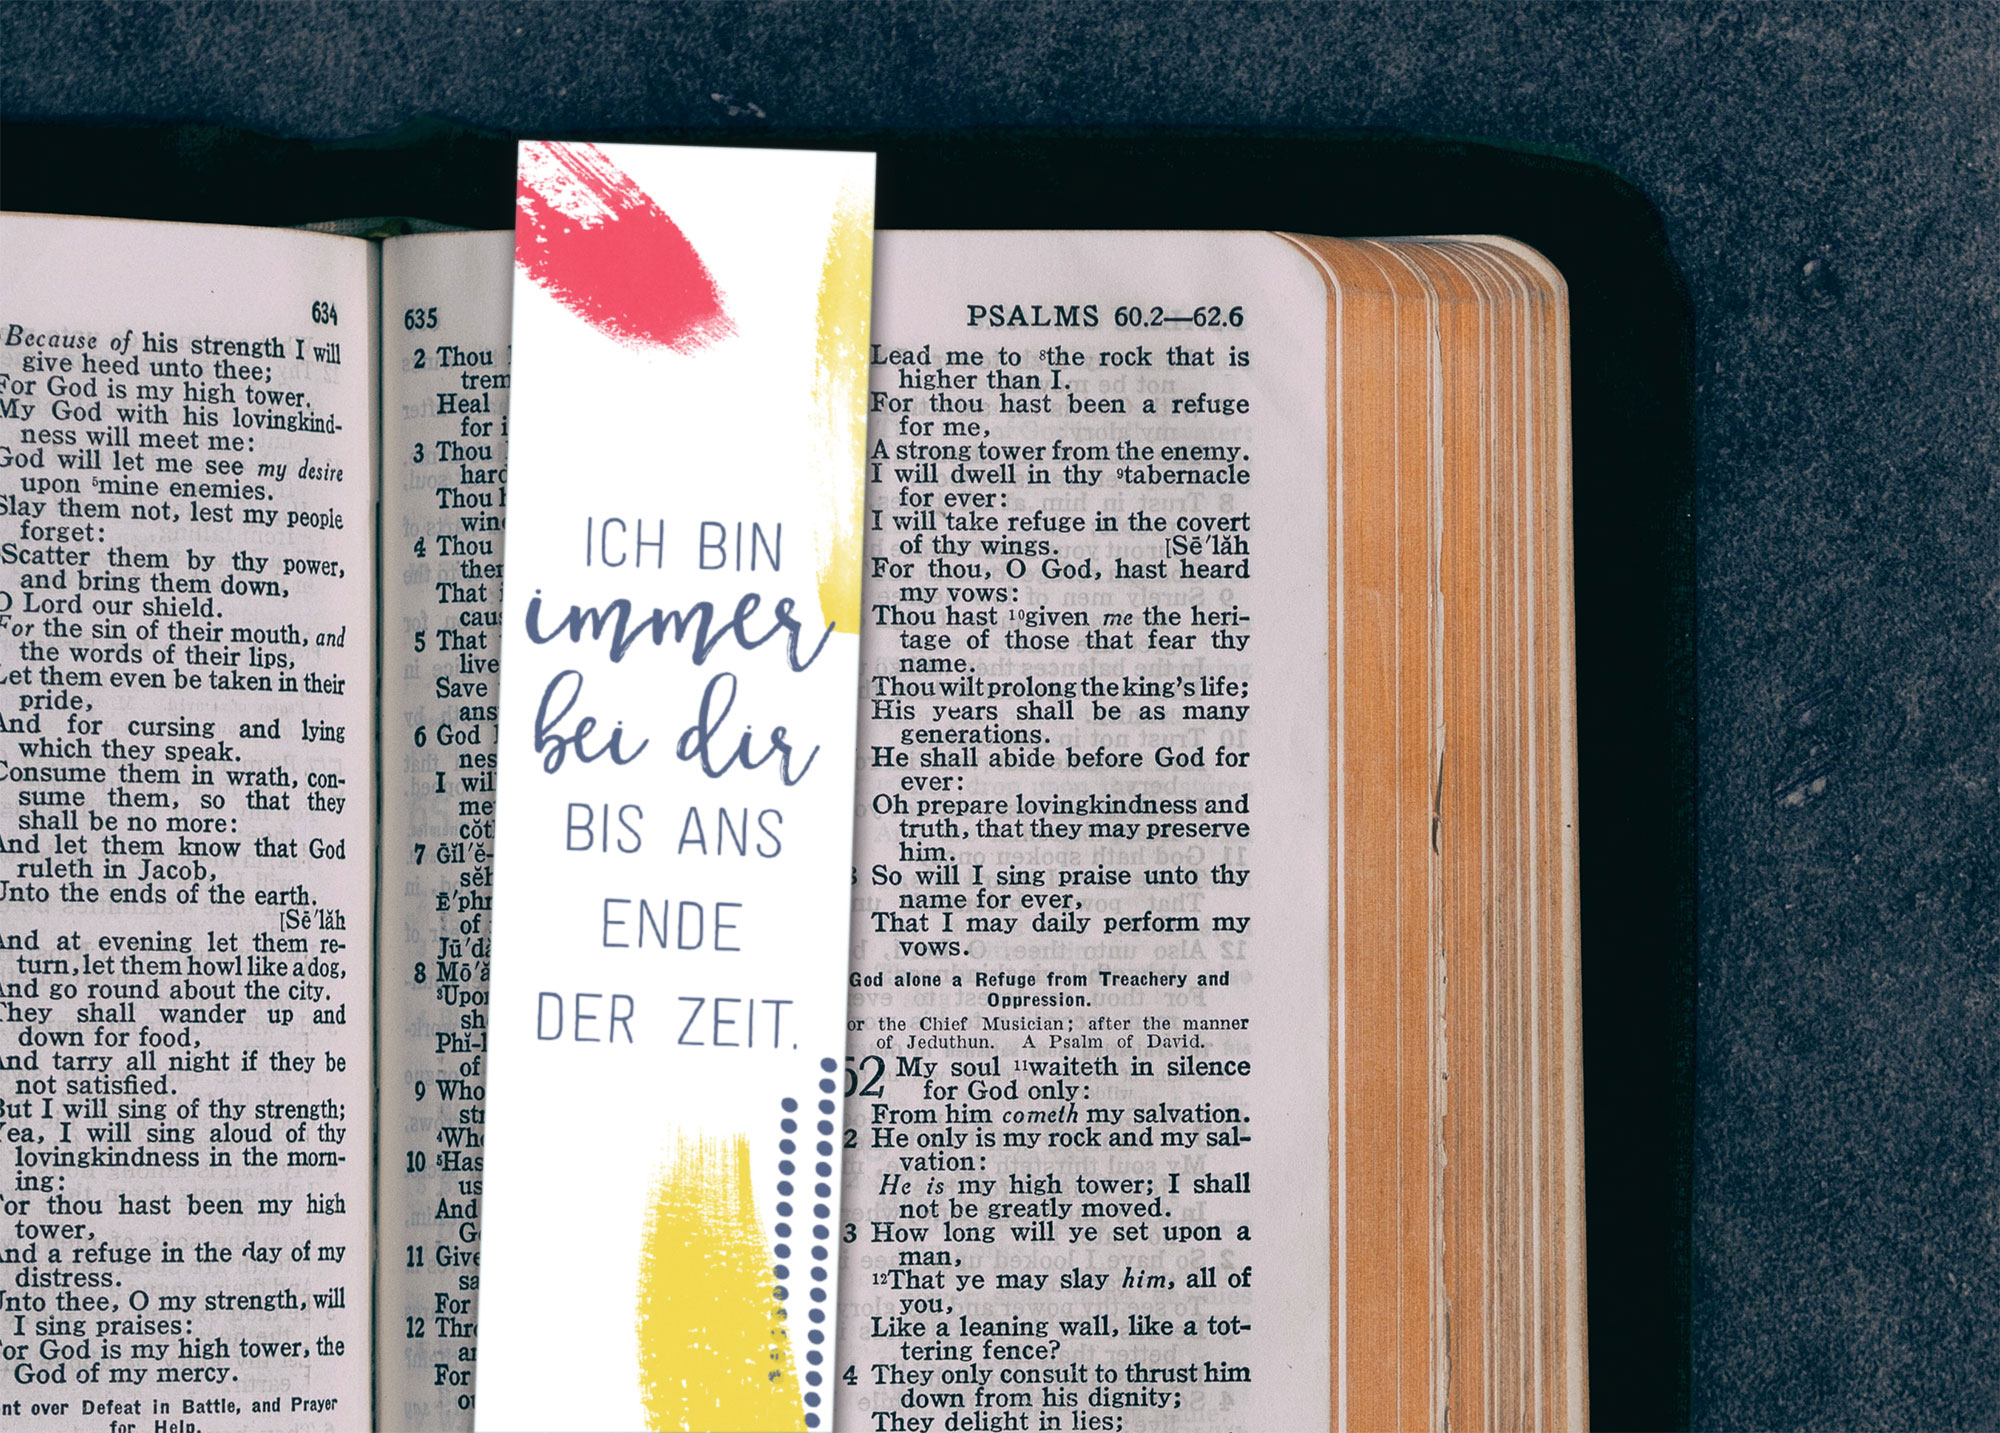 634
Because of his strength I will
give heed unto thee;
For God is my high tower.
My God with his lovingkind-
ness will meet me:
God will let me see my desire
upon ⁵mine enemies.
Slay them not, lest my people
forget:
Scatter them by thy power,
and bring them down,
O Lord our shield.
For the sin of their mouth, and
the words of their lips,
Let them even be taken in their
pride,
And for cursing and lying
which they speak.
Consume them in wrath, con-
sume them, so that they
shall be no more:
And let them know that God
ruleth in Jacob,
Unto the ends of the earth.
[Sē′lăh
And at evening let them re-
turn, let them howl like a dog,
And go round about the city.
They shall wander up and
down for food,
And tarry all night if they be
not satisfied.
But I will sing of thy strength;
Yea, I will sing aloud of thy
lovingkindness in the morn-
ing:
For thou hast been my high
tower,
And a refuge in the day of my
distress.
Unto thee, O my strength, will
I sing praises:
For God is my high tower, the
God of my mercy.
nt over Defeat in Battle, and Prayer
for Help.
635
2 Thou
trem
Heal
for i
3 Thou
hard
Thou h
wine
4 Thou
ther
That i
caus
5 That
live
Save
ans
6 God
nes
I wil
me
cŏt
7 Ḡĭl′ĕ-
sĕh
Ē′phr
of
Jū′dă
8 Mō′ă
³Upon
sh
Phĭ-l
of
9 Who
str
⁴Who
10 ⁵Has
us
And
Go
11 Give
sa
For
12 Thro
ar
For
ou
ICH BIN
immer
bei dir
BIS ANS
ENDE
DER ZEIT.
PSALMS 60.2—62.6
Lead me to ⁸the rock that is
higher than I.
For thou hast been a refuge
for me,
A strong tower from the enemy.
I will dwell in thy ⁹tabernacle
for ever:
I will take refuge in the covert
of thy wings. [Sē′lăh
For thou, O God, hast heard
my vows:
Thou hast ¹⁰given me the heri-
tage of those that fear thy
name.
Thou wilt prolong the king's life;
His years shall be as many
generations.
He shall abide before God for
ever:
Oh prepare lovingkindness and
truth, that they may preserve
him.
8 So will I sing praise unto thy
name for ever,
That I may daily perform my
vows.
God alone a Refuge from Treachery and
Oppression.
or the Chief Musician; after the manner
of Jeduthun. A Psalm of David.
62 My soul ¹¹waiteth in silence
for God only:
From him cometh my salvation.
2 He only is my rock and my sal-
vation:
He is my high tower; I shall
not be greatly moved.
3 How long will ye set upon a
man,
¹²That ye may slay him, all of
you,
Like a leaning wall, like a tot-
tering fence?
4 They only consult to thrust him
down from his dignity;
They delight in lies;